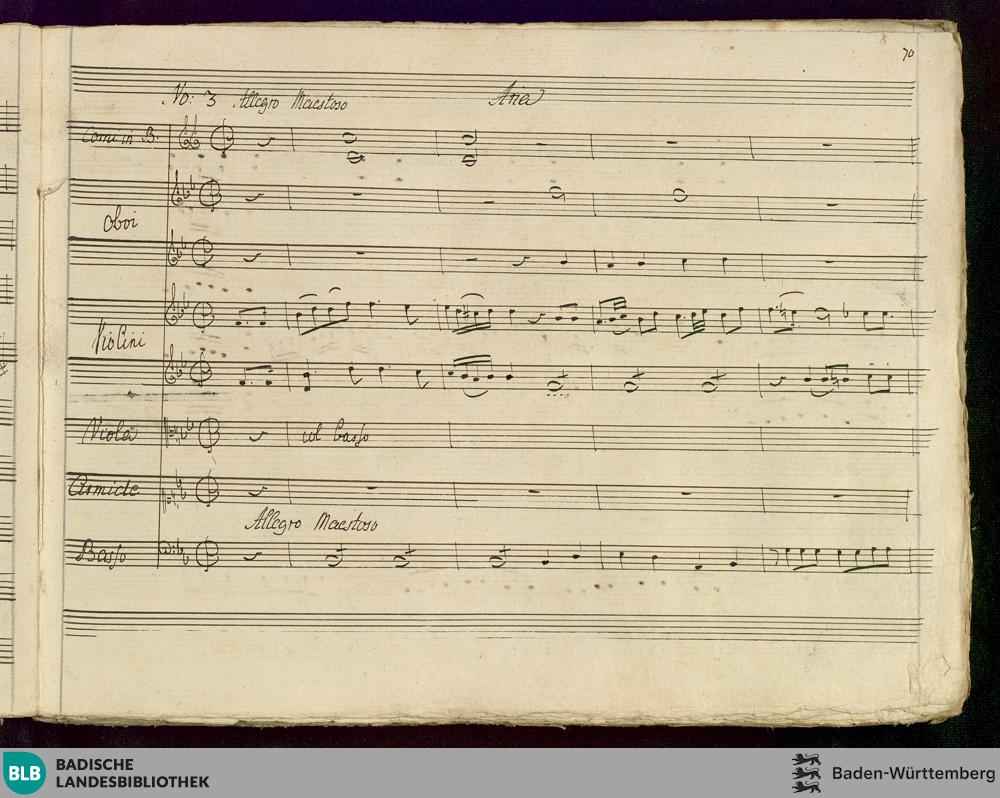 70
No: 3 Allegro Maestoso Aria
Corni in B.
Oboi
Violini
Viola col Basso
Armida
Allegro Maestoso
Basso
BLB BADISCHE
LANDESBIBLIOTHEK
Baden-Württemberg